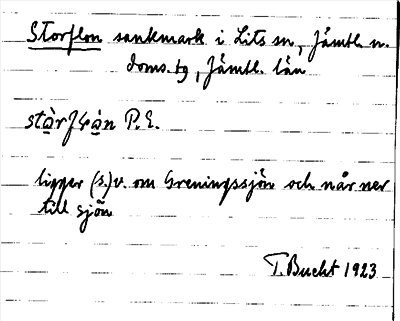 Storflon sankmark i Lits sn, Jämtl. n.
doms. tg, Jämtl. län
P.E.
ligger (s.)v. om Greningssjön och når ner
till sjön
T. Bucht 1923